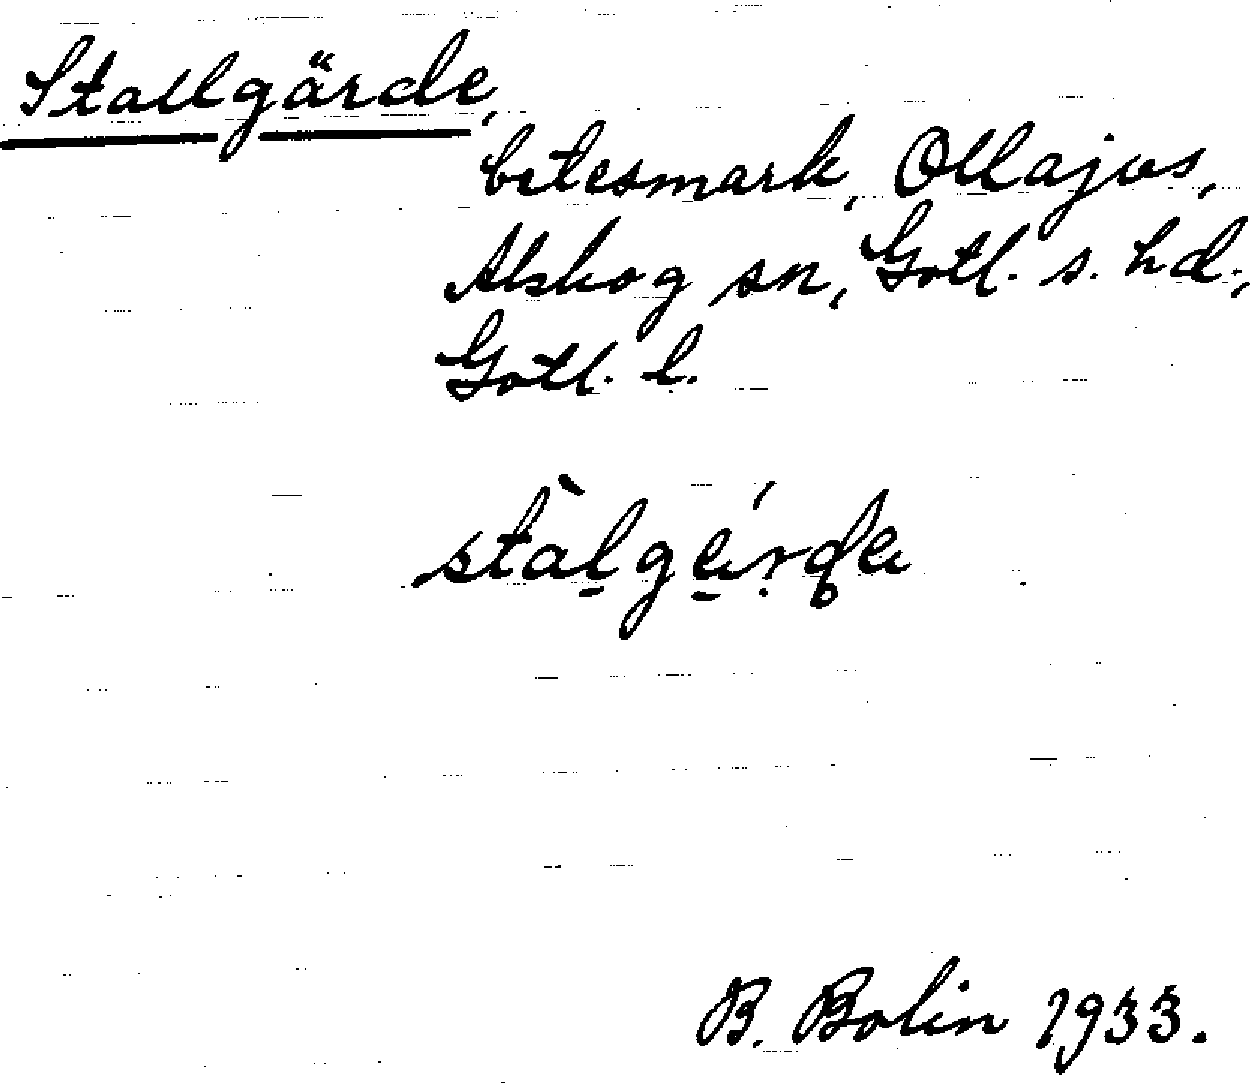 Stallgärde,
betesmark, Ollajvs,
Alskog sn, Gotl. s. hd.,
Gotl. l.
stàlgérde
B. Bolin 1933.